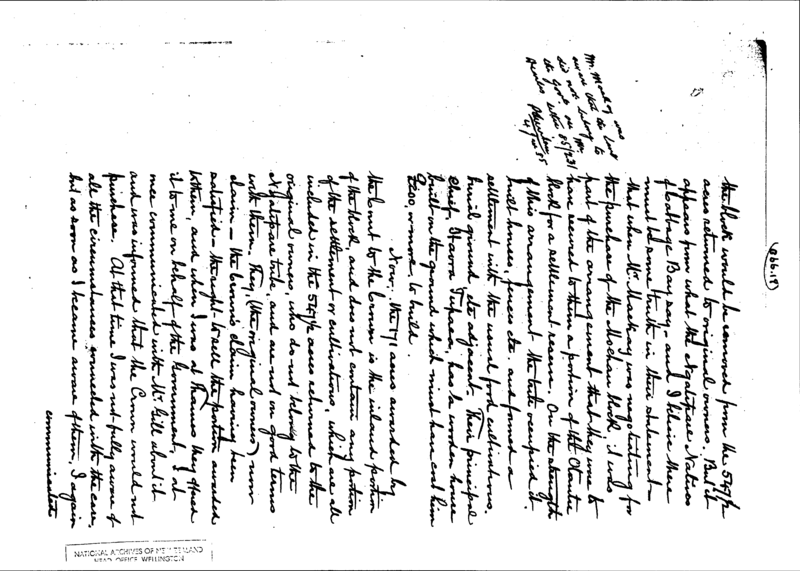 (266.19)
the block would be removed from the 549½
acres returned to original owners. But it
appears from what the Ngatipare Natives
of Cabbage Bay say, and I believe there
must be some truth in their statement
that when Mr Mackay was negotiating for
the purchase of the Moehau Block, it was
part of the arrangement that they were to
have secured to them a portion of the
block for a settlement reserve. On the strength
of this arrangement the tribe occupied it
built houses, fences etc and formed a
settlement with the usual food cultivations,
burial ground etc adjacent. Their principal
chief has a wooden house
built on the ground which must have cost him
£200, or more, to build.
Now, the 171 acres awarded by
the Court to the Crown is the inland portion
of the block, and does not contain any portion
of the settlement or cultivations, which are all
included in the 549½ acres returned to the
original owners, who do not belong to the
tribe, and are not on good terms
with them. They, (the original owners) now
claim – the Crown's claim having been
satisfied – the right to sell the portion awarded
to them, and when I was at Thames they offered
it to me on behalf of the Government, I at
once communicated with Mr Gill about it
and was informed that the Crown would not
purchase. At that time I was not fully aware of
all the circumstances connected with the case,
but as soon as I became aware of them, I again
communicated
Mr. Mackay was
aware that the land
did not belong to
the Govt
NATIONAL ARCHIVES OF NEW ZEALAND
HEAD OFFICE, WELLINGTON